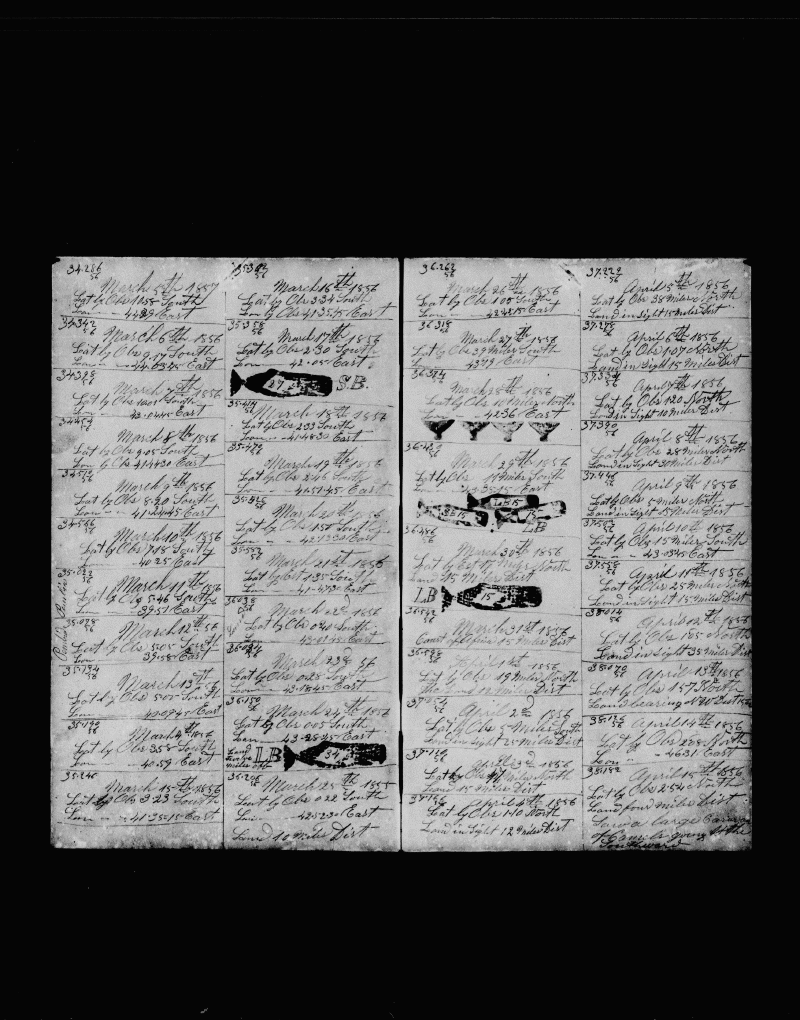 34.286
56
March 5th 1857
Lat by Obs 1155 South
Lon - 4429 East
34.342
56
March 6th 1856
Lat by Obs 9.17 South
Lon - - 44.0345 East
34.398
56
March 7th 1856
Lat by Obs 1001 South
Lon - - 43.0445 East
34.454
56
March 8th 1856
Lat by Obs 905 South
Lon by Obs 414430 East
34.510
56
March 9th 1856
Lat by Obs 8.20 South
Lon - - 41.2445 East
34.566
56
March 10th 1856
Lat by Obs 718 South
Lon - - 4025 East
35.022
56
March 11th 1856
Lat by Obs 546 South
Lon - - 3951 East
35.078
56
March 12th 56
Lat by Obs 505 South
Lon - - 3958 East
35.134
56
March 13th 56
Lat by Obs 502 South
Lon - - East
35.190
56
March 14th 1856
Lat by Obs 358 South
Lon - - 40.59 East
35.246
56
March 15th 1856
Lat by Obs 323 South
Lon - - 41.3515 East
35302
56
March 16th 1856
Lat by Obs 334 South
Lon by Obs 413545 East
35.358
56
March 17th 1856
Lat by Obs 230 South
Lon - - 42.05 East
27 2 S.B.
35.414
56
March 18th 1856
Lat by Obs 233 South
Lon - - 414830 East
35.470
56
March 19th 1856
Lat by Obs 245 South
Lon - - East
35.526
56
March 20th 1856
Lat by Obs 157 South
Lon - - 421330 East
35.582
56
March 21st 1856
Lat by Est 135 South
Lon - East
36.038
56
March 22d 1856
Lat by Obs 040 South
Lon - - 43.0145 East
36.094
56
March 23d 56
Lat by Obs 028 South
Lon - - 43.1845 East
36.150
56
March 24th 1856
Lat by Obs 005 South
Lon - - 43.2845 East
Land
Twelve
miles Dist
LB 34
36.206
56
March 25th 1856
Lat by Obs 022 South
Lon - 425230 East
Land 10 Miles Dist
36.262
56
March 26th 1856
Lat by Obs 105 South
Lon - - 424815 East
36.318
56
March 27th 1856
Lat by Obs 39 Miles South
Lon - - 4319 East
36.374
56
March 28th 1856
Lat by Obs Miles North
Lon - - 4236 East
36.430
56
March 29th 1856
Lat by Obs Miles North
Lon - East
LB 15
LB 15
15
LB
36.486
56
March 30th 1856
Lat by Est 17 Miles North
Land 15 Miles Dist
LB 15
36.542
56
March 31st 1856
Coast of Africa 15 Miles Dist
36.598
56
April 1st 1856
Lat by Obs 19 Miles North
the Land 12 Miles Dist
37.054
56
April 2d 1856
Lat by Obs 5 Miles South
Land in Sight 25 Miles Dist
37.110
56
April 3d 1856
Lat by Obs Miles North
Land 15 Miles Dist
37.166
56
April 4th 1856
Lat by Obs 110 North
Land in Sight 12 Miles Dist
37.222
56
April 5th 1856
Lat by Obs 38 Miles North
Land in Sight 15 Miles Dist
37.278
56
April 6th 1856
Lat by Obs 107 North
Land in Sight 15 Miles Dist
37.334
56
April 7th 1856
Lat by Obs 120 North
Land in Sight 10 Miles Dist
37.390
56
April 8th 1856
Lat by Obs 28 Miles North
Land in Sight 30 Miles Dist
37.446
56
April 9th 1856
Lat by Obs 5 Miles North
Land in Sight 15 Miles Dist
37.502
56
April 10th 1856
Lat by Obs 15 Miles South
Lon - - 43.0345 East
37.558
56
April 11th 1856
Lat by Obs 25 Miles North
Land in Sight 15 Miles Dist
38.014
56
April 12th 1856
Lat by Obs 135 North
Land in Sight 35 Miles Dist
38.070
56
April 13th 1856
Lat by Obs 157 North
Land bearing NW Dist
38.126
56
April 14th 1856
Lat by Obs 228 North
Lon - 4631 East
38.182
56
April 15th 1856
Lat by Obs 254 North
Land four miles Dist
Saw a large Caravan
of Camels going to the
Southward